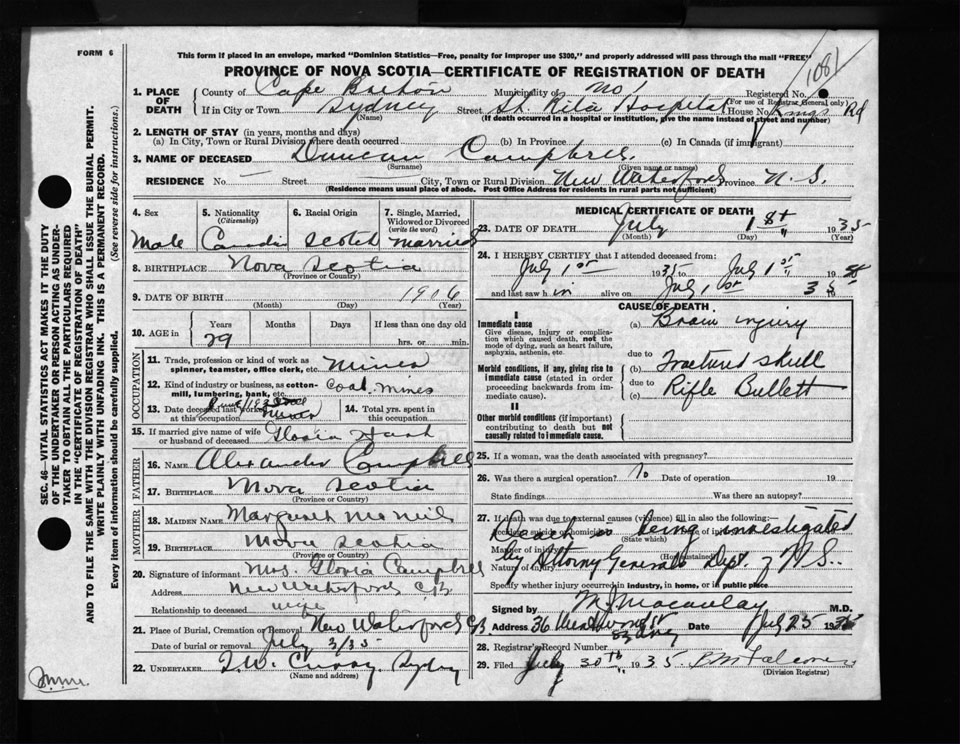 FORM 6
This form if placed in an envelope, marked "Dominion Statistics—Free, penalty for improper use $300," and properly addressed will pass through the mail "FREE"
PROVINCE OF NOVA SCOTIA—CERTIFICATE OF REGISTRATION OF DEATH
1081
1. PLACE OF DEATH
County of Cape Breton Municipality of No 1 Registered No.
(For use of Registrar General only)
If in City or Town Sydney Street St. Rita Hospital House No. Kings Rd
(Name) (If death occurred in a hospital or institution, give the name instead of street and number)
2. LENGTH OF STAY (in years, months and days)
(a) In City, Town or Rural Division where death occurred (b) In Province (c) In Canada (if immigrant)
3. NAME OF DECEASED Duncan Campbell
(Surname) (Given name or names)
RESIDENCE No. — Street City, Town or Rural Division New Waterford Province N. S.
(Residence means usual place of abode. Post Office Address for residents in rural parts not sufficient)
4. Sex Male
5. Nationality (Citizenship)
6. Racial Origin Scotch
7. Single, Married, Widowed or Divorced (write the word) Married
8. BIRTHPLACE Nova Scotia
(Province or Country)
9. DATE OF BIRTH 1906
(Month) (Day) (Year)
10. AGE in Years Months Days If less than one day
29 hrs. or min.
OCCUPATION
11. Trade, profession or kind of work as spinner, teamster, office clerk, etc. Miner
12. Kind of industry or business, as cotton-mill, lumbering, bank, etc. Coal Mines
13. Date deceased last worked at this occupation
14. Total yrs. spent in this occupation
15. If married give name of wife or husband of deceased Gloria
FATHER
16. NAME Alexander Campbell
17. BIRTHPLACE Nova Scotia
(Province or Country)
MOTHER
18. MAIDEN NAME Margaret McNeil
19. BIRTHPLACE Nova Scotia
(Province or Country)
20. Signature of informant Mrs. Gloria Campbell
Address New Waterford C.B.
Relationship to deceased wife
21. Place of Burial, Cremation or Removal New Waterford CB
Date of burial or removal July 3/35
22. UNDERTAKER Sydney
(Name and address)
MEDICAL CERTIFICATE OF DEATH
23. DATE OF DEATH July 1st 1935
(Month) (Day) (Year)
24. I HEREBY CERTIFY that I attended deceased from:
July 1st 1935 to July 1st 19
and last saw h im alive on July 1st 19 35
CAUSE OF DEATH
I
Immediate cause
Give disease, injury or complication which caused death, not the mode of dying, such as heart failure, asphyxia, asthenia, etc.
(a) Brain injury
due to
Morbid conditions, if any, giving rise to immediate cause (stated in order proceeding backwards from immediate cause).
(b) Fractured skull
due to
(c) Rifle Bullett
II
Other morbid conditions (if important) contributing to death but not causally related to immediate cause.
25. If a woman, was the death associated with pregnancy?
26. Was there a surgical operation? No Date of operation 19
State findings Was there an autopsy?
27. If death was due to external causes (violence) fill in also the following:
Accident, suicide or homicide (State which)
Manner of injury (How sustained)
Nature of injury
Death is being investigated
by Attorny Generals Dept. of N.S.
Specify whether injury occurred in industry, in home, or in public place
Signed by M.D.
Address 36 Date July 25 1935
28. Registrar's Record Number
29. Filed July 30th 1935
(Division Registrar)
SEC. 46—VITAL STATISTICS ACT MAKES IT THE DUTY OF THE UNDERTAKER OR PERSON ACTING AS UNDERTAKER TO OBTAIN ALL THE PARTICULARS REQUIRED IN THE "CERTIFICATE OF REGISTRATION OF DEATH" AND TO FILE THE SAME WITH THE DIVISION REGISTRAR WHO SHALL ISSUE THE BURIAL PERMIT.
WRITE PLAINLY WITH UNFADING INK. THIS IS A PERMANENT RECORD.
Every item of information should be carefully supplied. (See reverse side for instructions.)